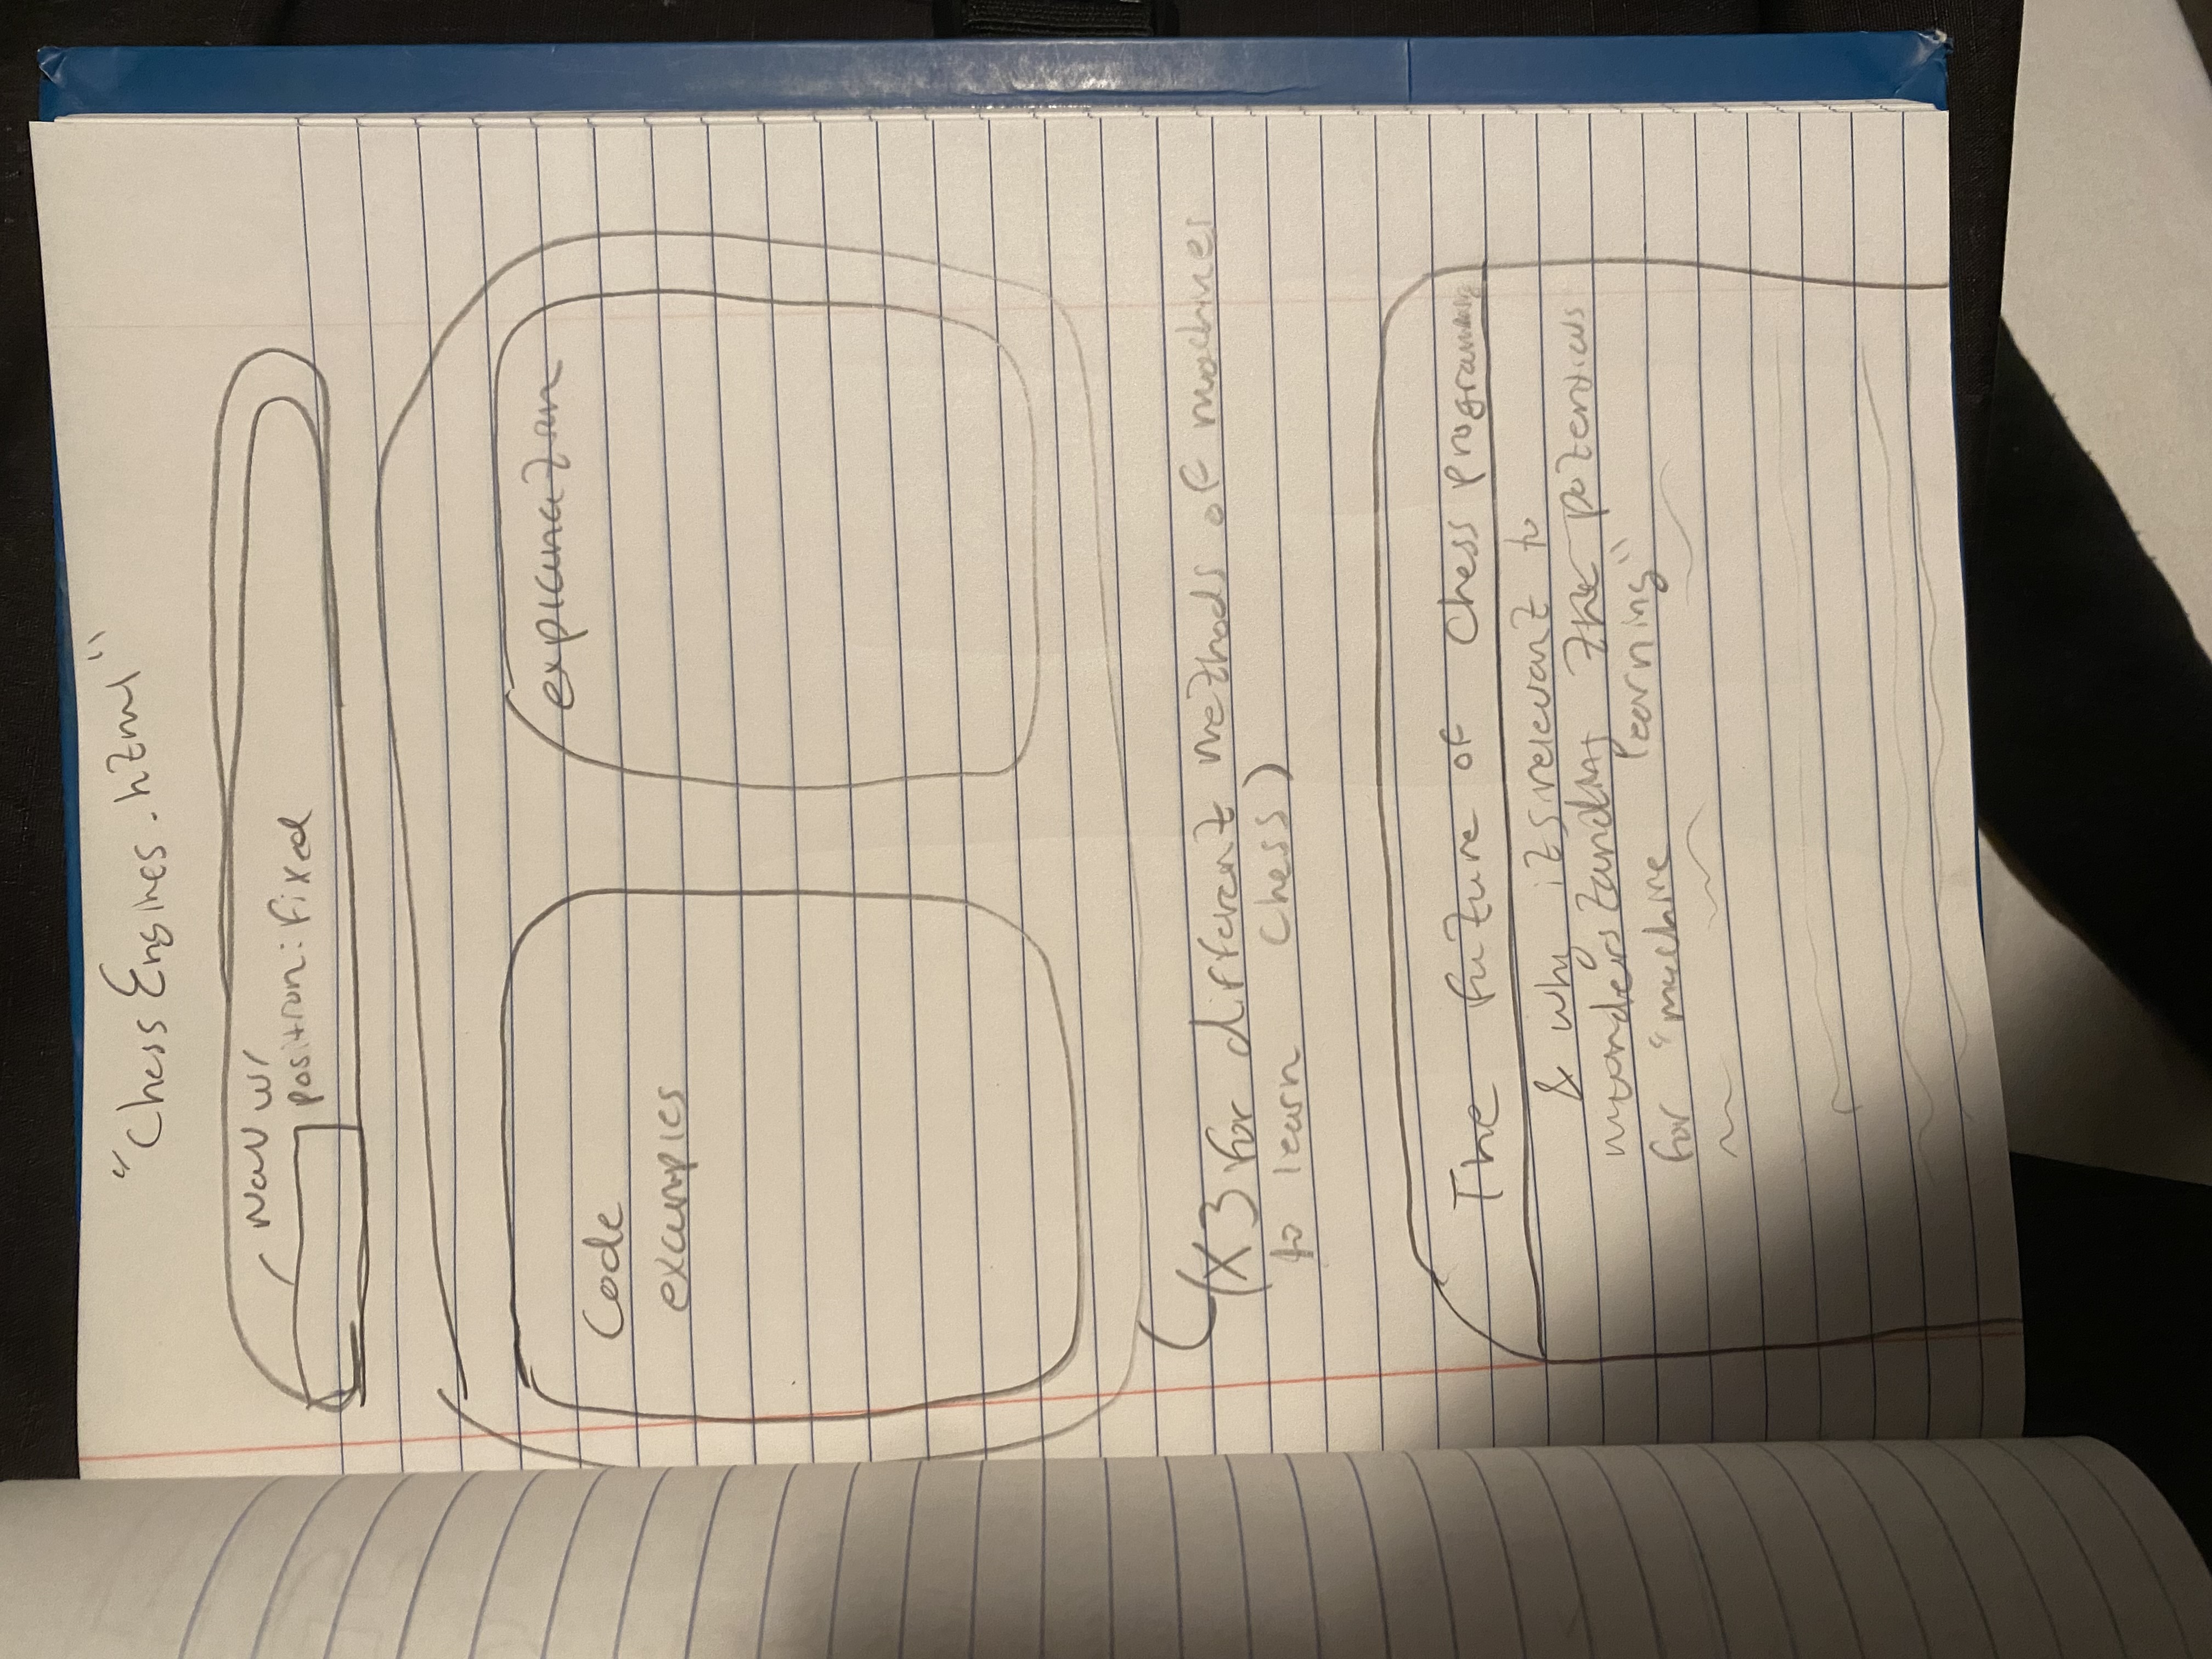 "Chess Engines.html"
Nav w/
position: fixed
Code
examples
explanation
(X3 for different methods of machines
to learn Chess)
The future of Chess programming
& why its relevant to
understanding the potentials
for "machine learning"